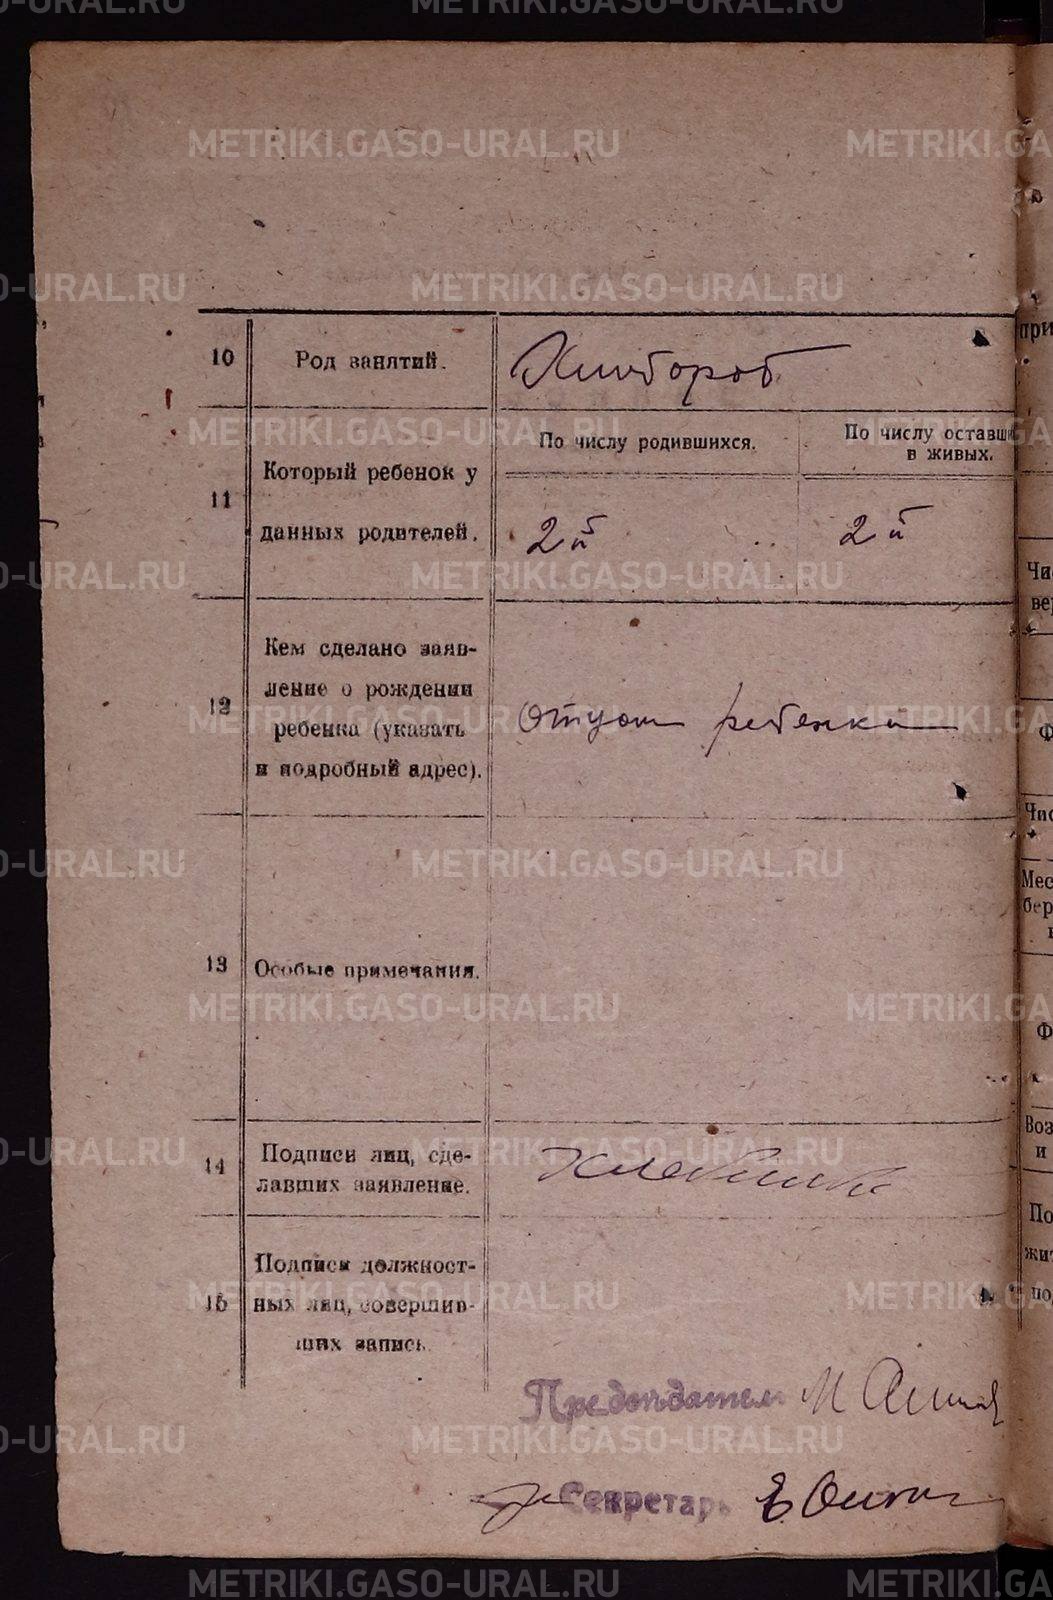 METRIKI.GASO-URAL.RU
10 Род занятий. Хлебороб
11 Который ребенок у
данных родителей.
По числу родившихся.
По числу оставши
в живых.
2й 2й
12 Кем сделано заяв-
ление о рождении
ребенка (указать
и подробный адрес).
Отцом ребенка
13 Особые примечания.
14 Подписи лиц, сде-
лавших заявление.
15 Подписи должност-
ных лиц, совершив-
ших запись.
Председатель М
Секретарь Е
при
Чи
ве
Ф
Чис
Мес
бер
Ф
Воз
и
По
жит
по